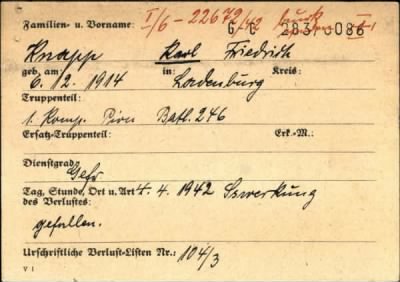 Familien- u. Vorname: I/6 - 22672/42
G C 283 0086
Knapp Karl Friedrich
geb. am: in: Kreis:
6. 12. 1914 Ladenburg
Truppenteil:
1. Komp. Pion Batl. 246
Ersatz-Truppenteil: Erk.-M.:
Dienstgrad: Gefr
Tag, Stunde, Ort u. Art 4. 4. 1942
des Verlustes:
gefallen.
Urschriftliche Verlust-Listen Nr.: 104/3
V I